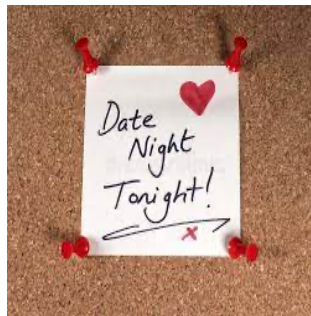 Date
Night
Tonight!
x